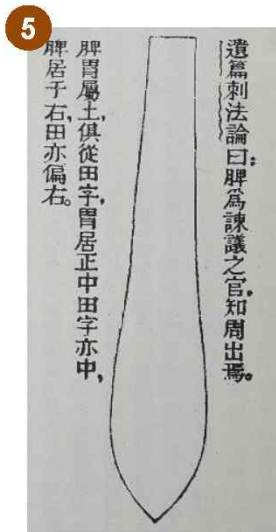 5
遺篇刺法論曰：脾爲諫議之官，知周出焉。
脾胃屬土，俱從田字，胃居正中田字亦中，
脾居于右，田亦偏右。